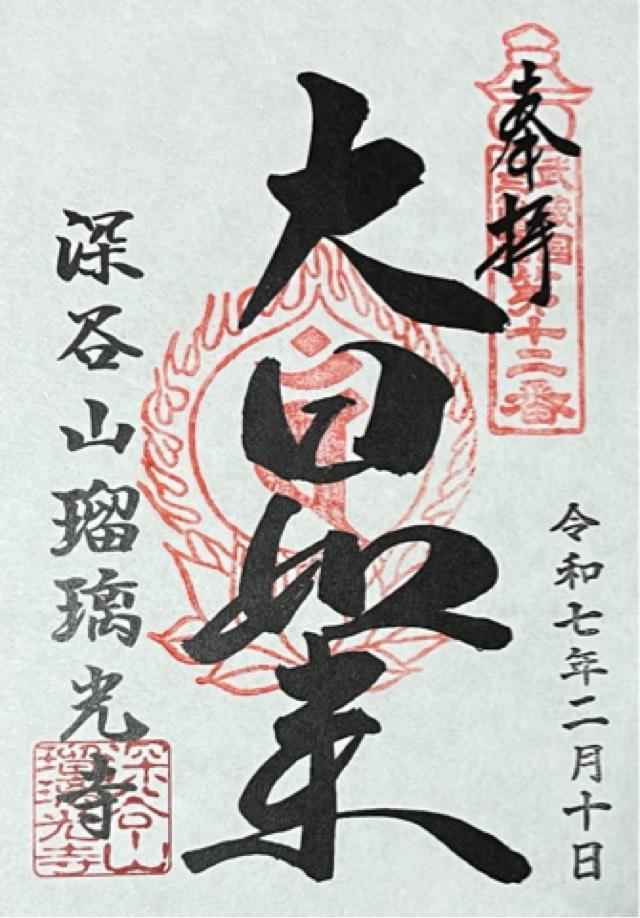 奉拝
第十二番
大日如来
深谷山瑠璃光寺
令和七年二月十日
深谷山
瑠璃光寺